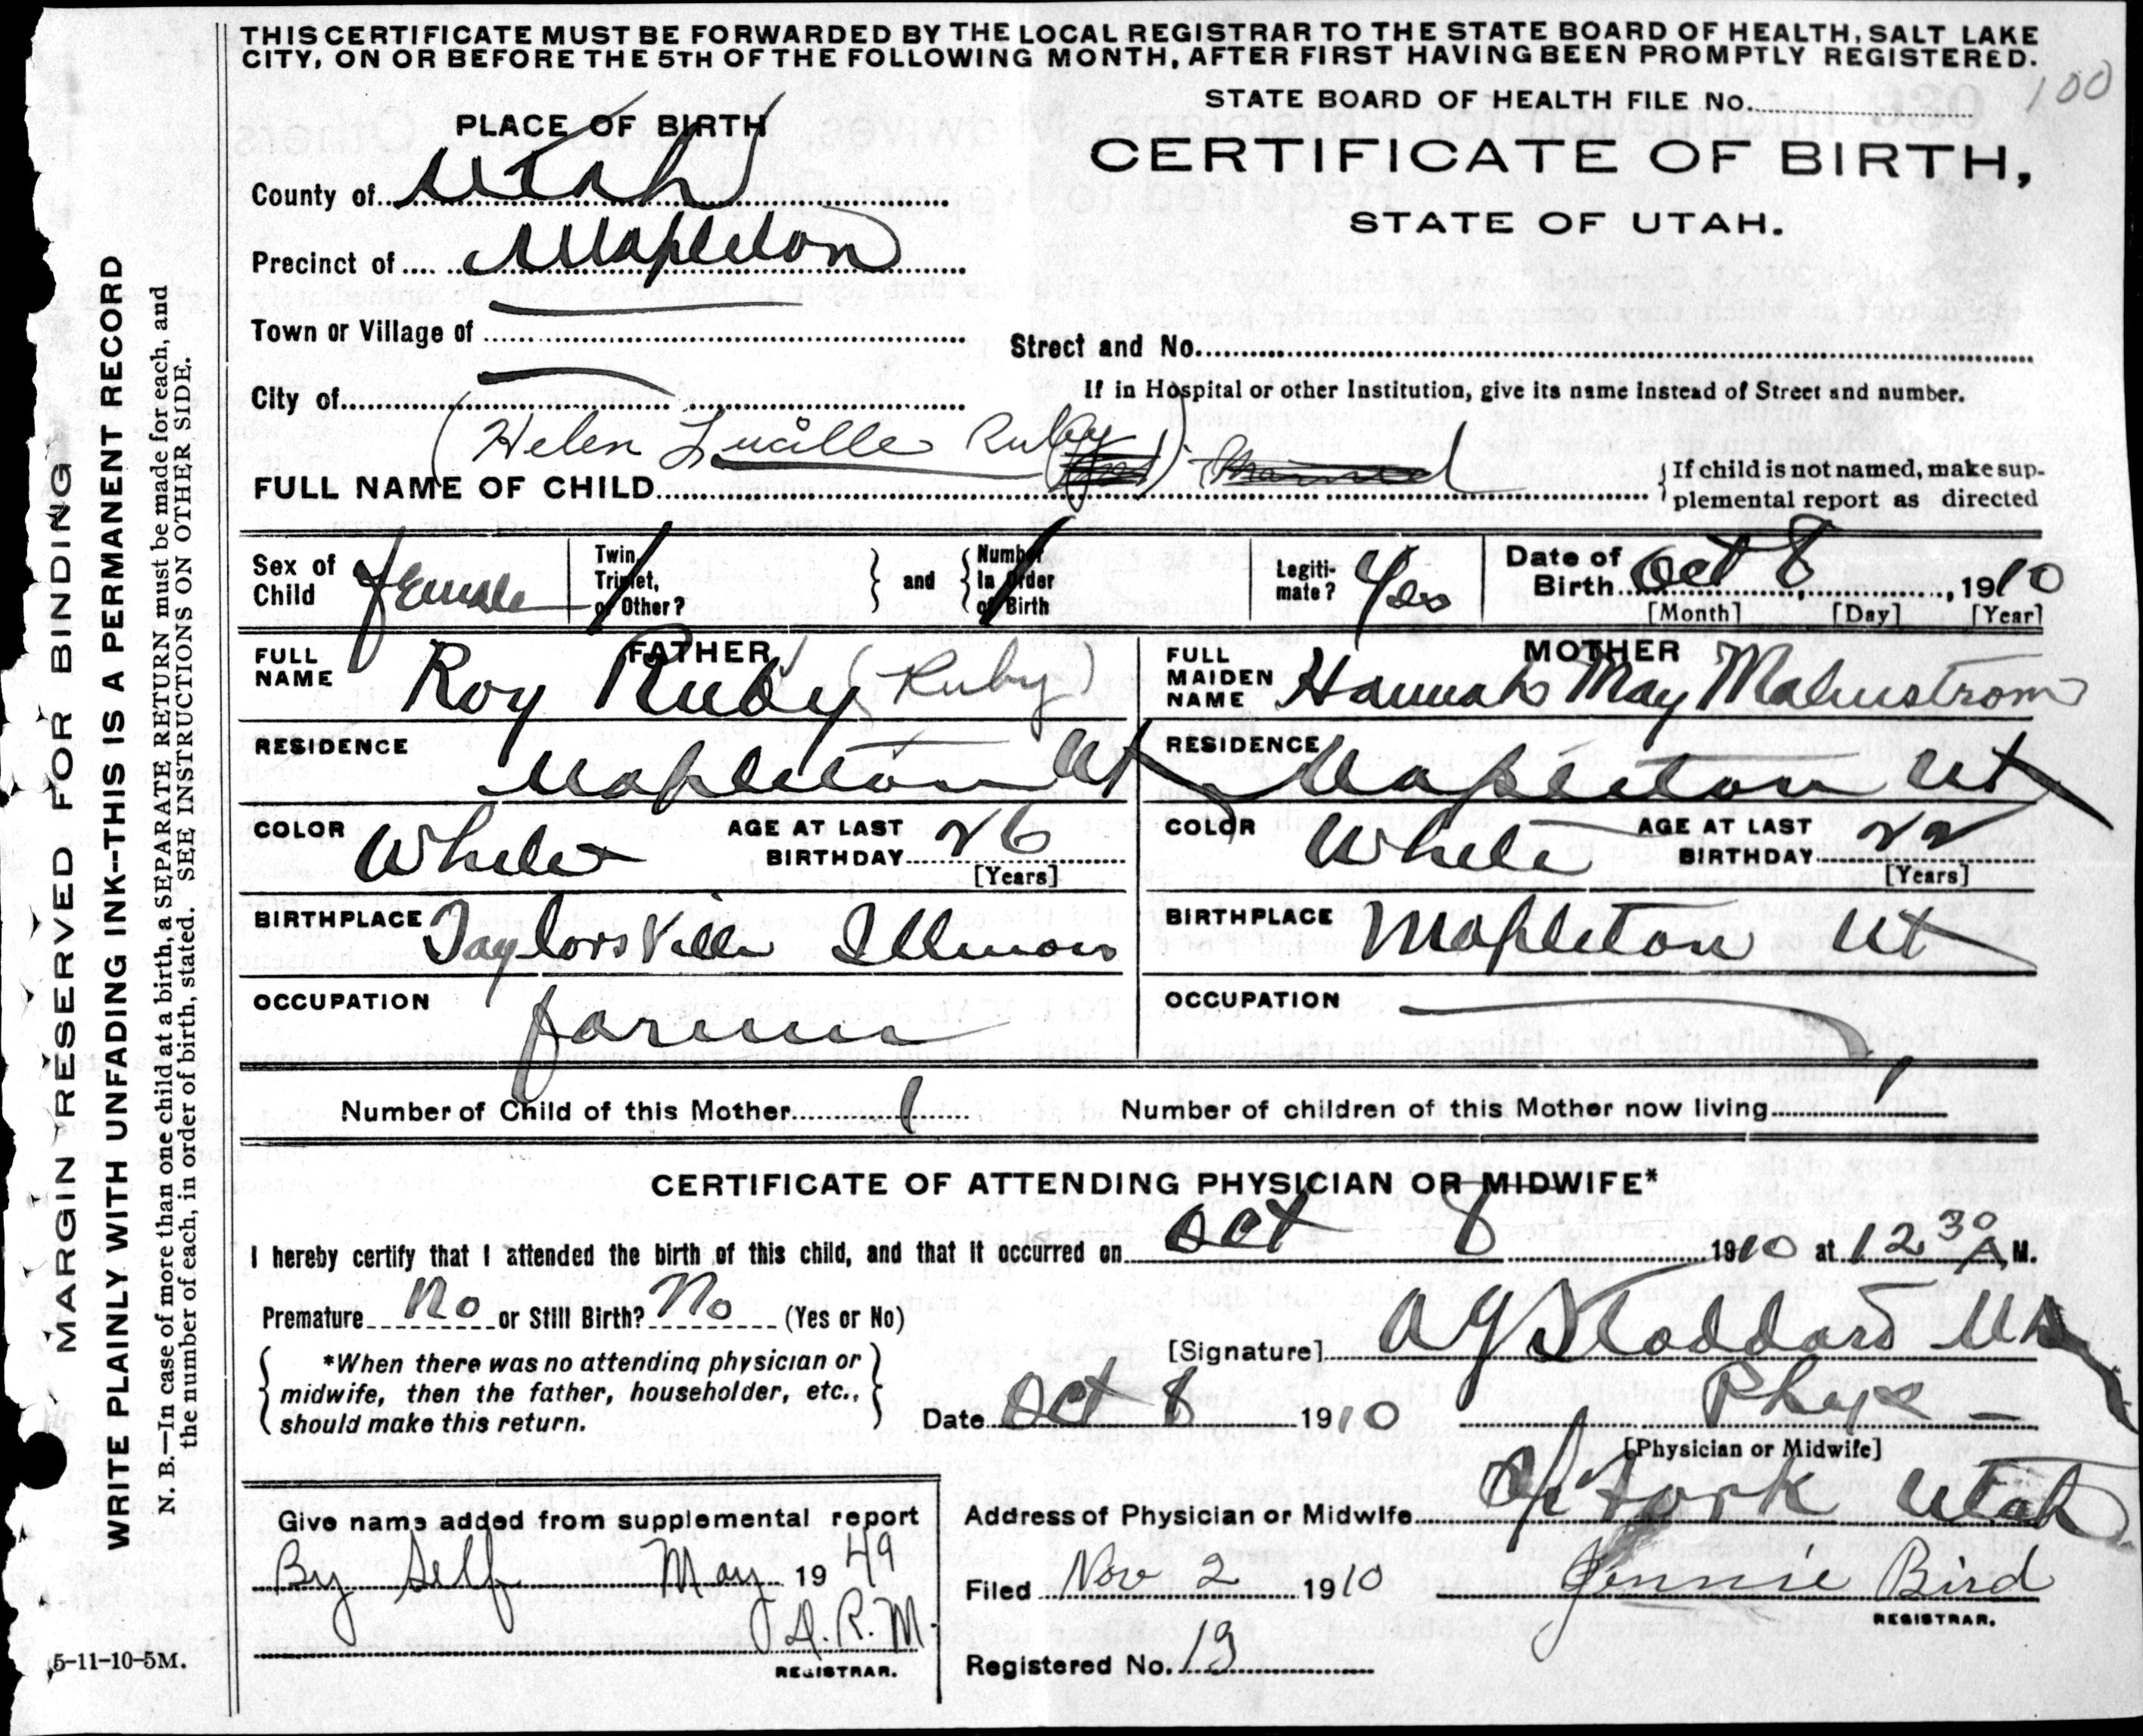 THIS CERTIFICATE MUST BE FORWARDED BY THE LOCAL REGISTRAR TO THE STATE BOARD OF HEALTH, SALT LAKE
CITY, ON OR BEFORE THE 5TH OF THE FOLLOWING MONTH, AFTER FIRST HAVING BEEN PROMPTLY REGISTERED.
100
STATE BOARD OF HEALTH FILE No.
PLACE OF BIRTH
CERTIFICATE OF BIRTH,
STATE OF UTAH.
County of Utah
Precinct of Mapleton
Town or Village of
Street and No.
City of
If in Hospital or other Institution, give its name instead of Street and number.
(Helen Lucille Ruby)
FULL NAME OF CHILD
If child is not named, make sup-
plemental report as directed
Sex of Child female
Twin, Triplet, or Other?
and
Number in Order of Birth
Legiti-mate? Yes
Date of Birth Oct 8, 1910
[Month] [Day] [Year]
FATHER
FULL NAME Roy Ruby (Ruby)
RESIDENCE Mapleton Ut
COLOR White AGE AT LAST BIRTHDAY 26
[Years]
BIRTHPLACE Taylorsville Illinois
OCCUPATION farmer
MOTHER
FULL MAIDEN NAME Hannah May Malmstrom
RESIDENCE Mapleton Ut
COLOR White AGE AT LAST BIRTHDAY 22
[Years]
BIRTHPLACE Mapleton Ut
OCCUPATION
Number of Child of this Mother 1 Number of children of this Mother now living 1
CERTIFICATE OF ATTENDING PHYSICIAN OR MIDWIFE*
I hereby certify that I attended the birth of this child, and that it occurred on Oct 8 1910 at 12 30 A M.
Premature No or Still Birth? No (Yes or No)
*When there was no attending physician or
midwife, then the father, householder, etc.,
should make this return.
[Signature] A G Stoddard MD
Date Oct 8 1910 Phys
[Physician or Midwife]
Address of Physician or Midwife Sp Fork Utah
Filed Nov 2 1910 Jennie Bird
REGISTRAR.
Registered No. 13
Give name added from supplemental report
By Self May 1949
D.R.M.
REGISTRAR.
5-11-10-5M.
MARGIN RESERVED FOR BINDING
WRITE PLAINLY WITH UNFADING INK--THIS IS A PERMANENT RECORD
N. B.—In case of more than one child at a birth, a SEPARATE RETURN must be made for each, and
the number of each, in order of birth, stated. SEE INSTRUCTIONS ON OTHER SIDE.